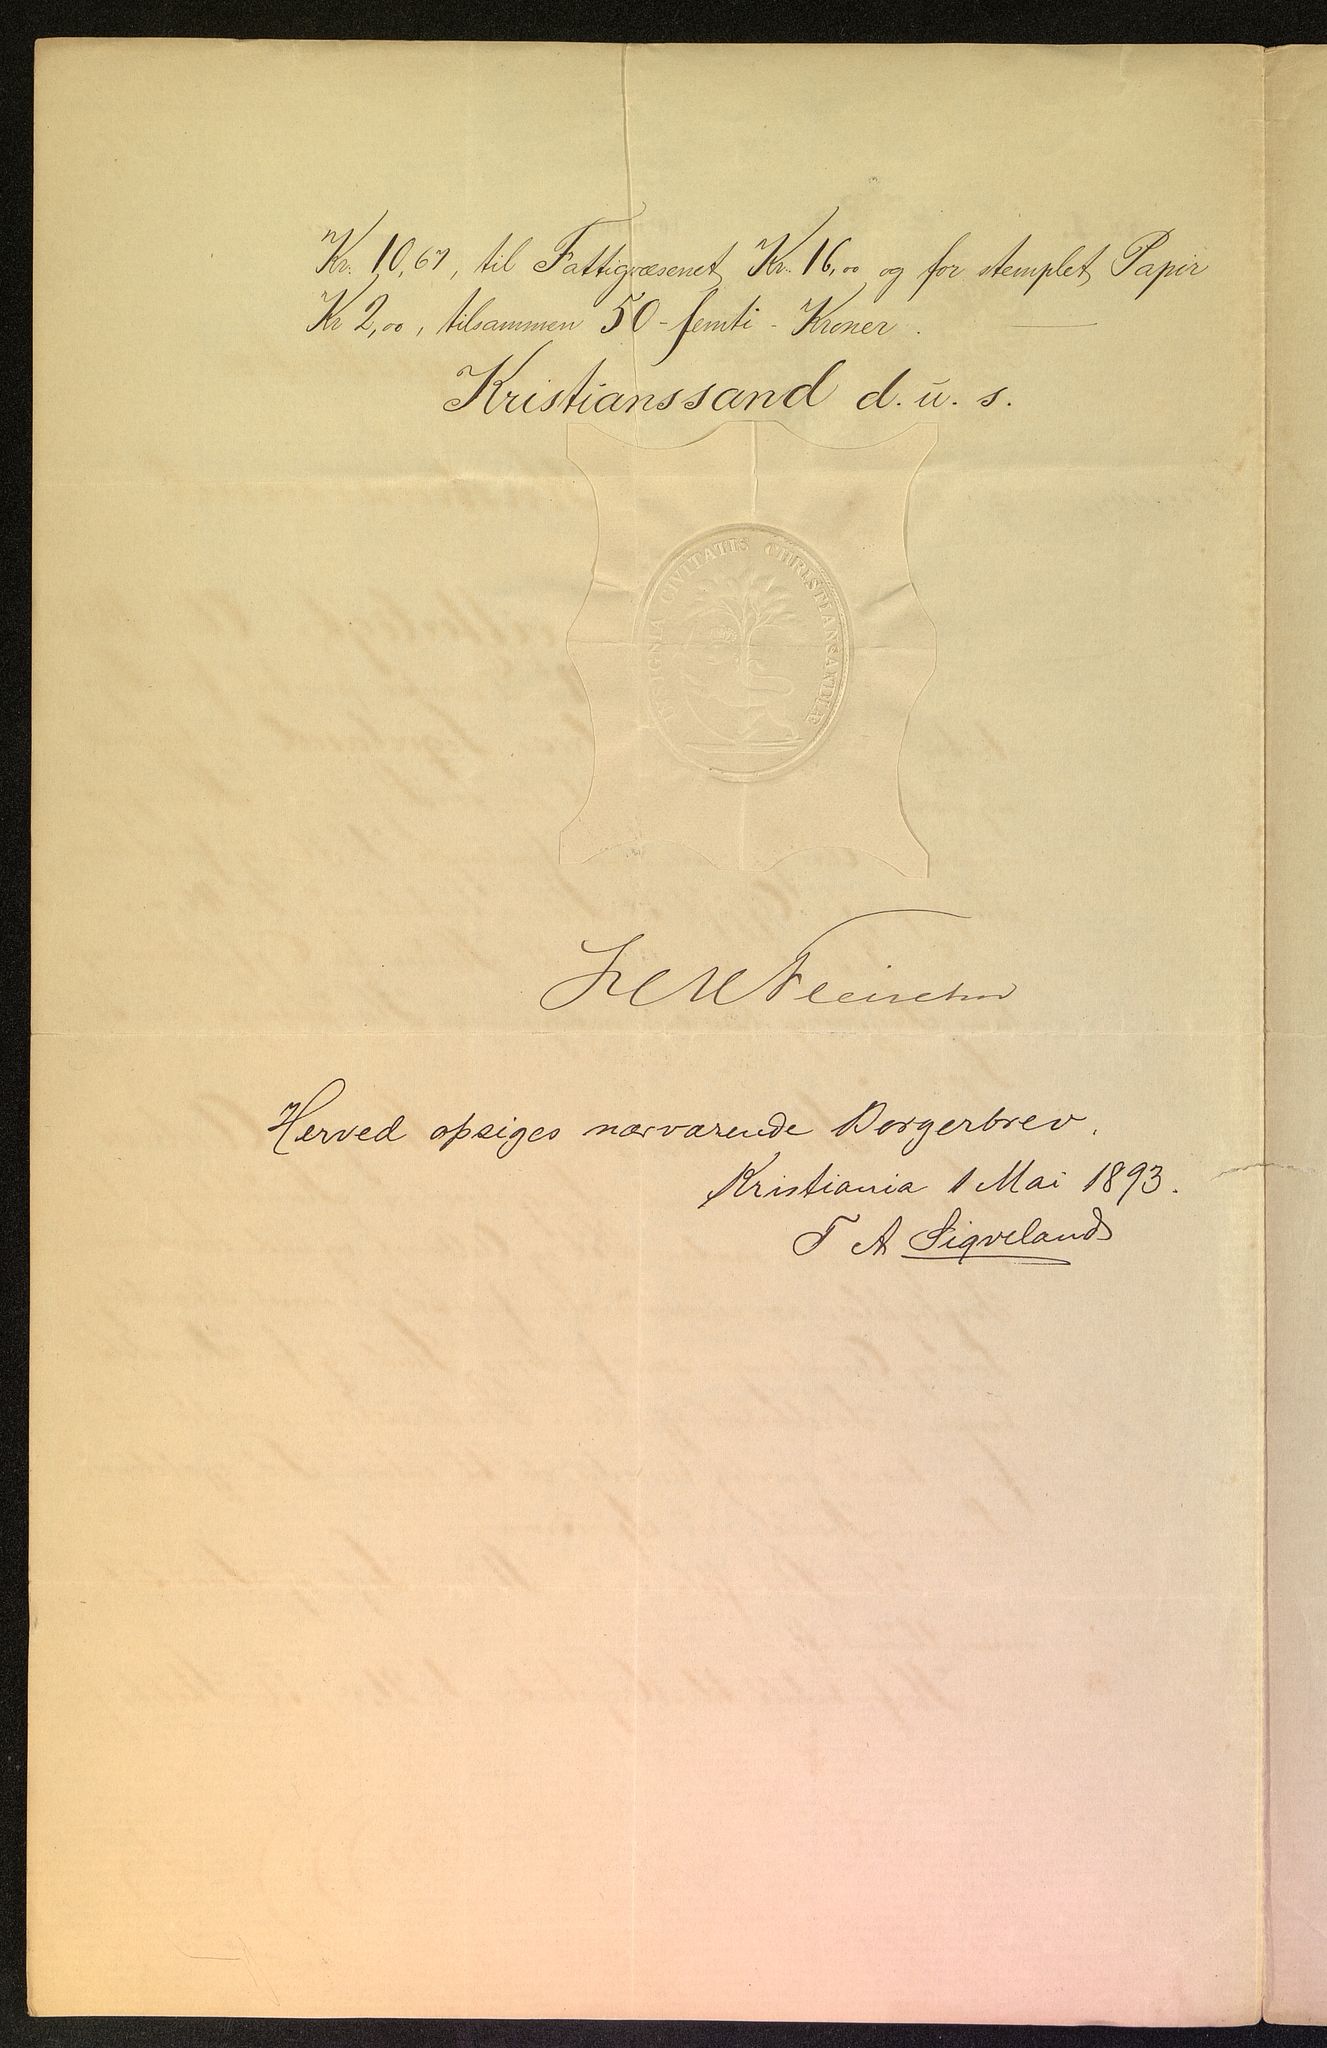 Kr. 10,67, til Fattigvæsenet Kr. 16,00 og for stemplet Papir
Kr 2,00, tilsammen 50 - femti - Kroner.
Kristianssand d. u. s.
INSIGNIA CIVITATIS CHRISTIANSANDIÆ
Fleischer
Herved opsiges nærværende Borgerbrev.
Kristiania 1 Mai 1893.
T A Sigveland